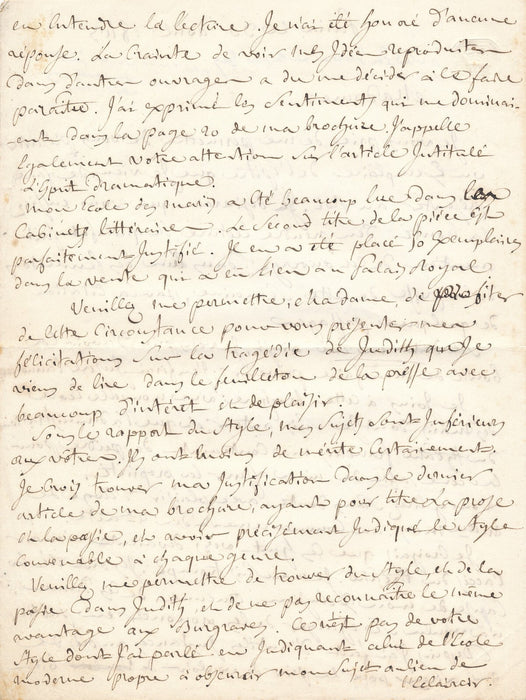 en entendre la lecture. Je n'ai été honoré d'aucune
réponse. La Crainte de voir mes Idées reproduites
dans d'autres ouvrages a du me décider à le faire
paraître. J'ai exprimé les Sentiments qui me dominai-
-ent dans la page 20 de ma brochure. J'appelle
Egalement votre attention sur l'article Intitulé
L'Esprit dramatique.
Mon Ecole des maris a été beaucoup lue dans les
Cabinets littéraires. Le Second titre de la pièce est
parfaitement Justifié. Je en a été placé 50 Exemplaires
dans la vente qui a eu lieu au Palais Royal
Veuillez me permettre, Madame, de profiter
de cette Circonstance pour vous présenter mes
félicitations sur la tragédie de Judith que Je
viens de lire dans le feuilleton de la presse avec
beaucoup d'intérêt et de plaisir.
Sous le rapport du Style, mes Sujets sont Inférieurs
aux vôtres. Ils ont moins de mérite certainement.
Je crois trouver ma Justification dans le dernier
article de ma brochure, ayant pour titre La prose
et la poësie, et avoir précisément Indiqué le Style
Convenable à chaque genre.
Veuillez me permettre de trouver du Style, et de la
poësie dans Judith, et de ne pas reconnaître le même
avantage aux Burgraves. Ce n'est pas de votre
Style dont J'ai parlé en Indiquant celui de l'Ecole
moderne propre à obscurcir mon Sujet au lieu de
l'Eclaircir.